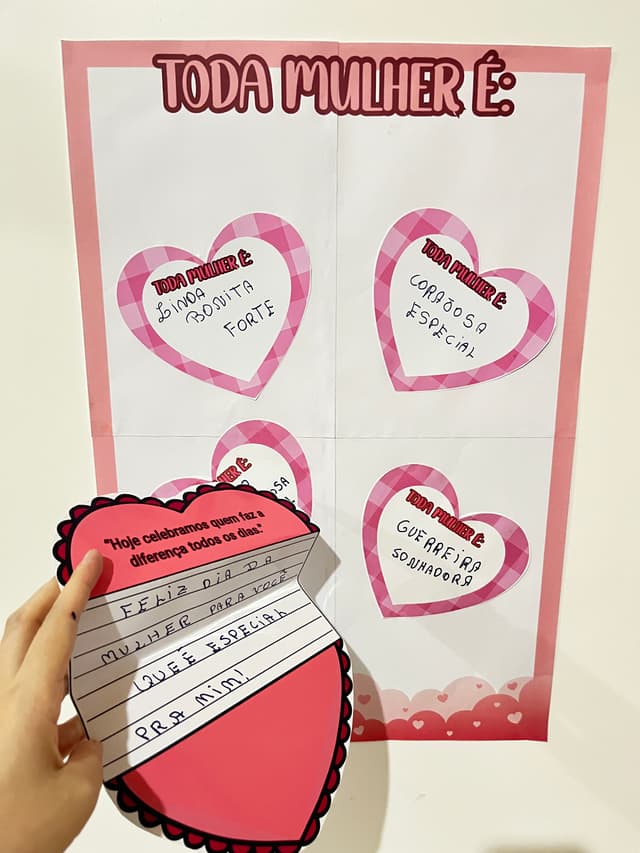 TODA MULHER É:
TODA MULHER É:
LINDA
BONITA
FORTE
TODA MULHER É:
CORAJOSA
ESPECIAL
TODA MULHER É:
GUERREIRA
SONHADORA
"Hoje celebramos quem faz a
diferença todos os dias."
FELIZ DIA DA
MULHER PARA VOCÊ
QUE É ESPECIAL
PRA MIM!